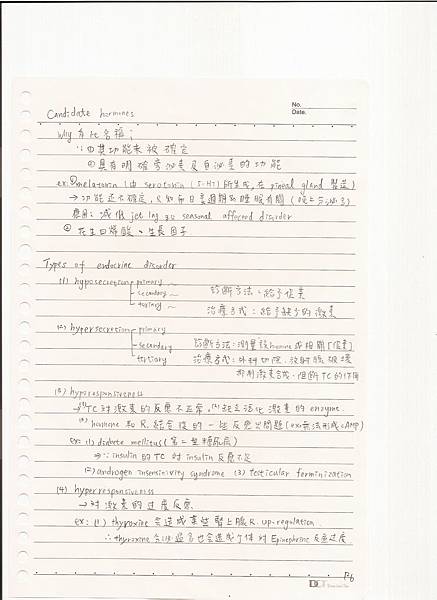 No.
Date.
Candidate hormones
Why 有此名稱;
∵①其功能未被確定
②具有明確旁泌素及自泌素的功能
ex:①melatonin (由 serotonin (5-HT) 所生成,在 pineal gland 製造)
→功能还不確定,只知和日夜週期和睡眠有關 (晚上分泌多)
應用:減低 jet lag 和 seasonal affected disorder
② 花生四烯酸、生長因子
Types of endocrine disorder
(1) hyposecretion primary 診斷方法:給予促素
secondary ~
tertiary ~ 治療方式:給予缺少的激素
(2) hypersecretion primary
secondary 診斷方法:測量該hormone或相關[促素]
tertiary 治療方式:外科切除、放射腺破壞
抑制激素合成、阻斷TC的作用
(3) hyporesponsiveness
→(1)TC對激素的反應不正常 (2)缺乏活化激素的enzyme.
(3) hormone 和 R.結合後的一些反應出問題(ex:無法形成cAMP)
ex: (1) diabete mellitus(第二型糖尿病)
⇒∵insulin的TC對insulin反應不足
(2)androgen insensitivity syndrome (3) testicular feminization
(4) hyperresponsiveness
→對激素的过度反應
ex: (1) thyroxine 会造成某些腎上腺R. up-regulation.
∴ thyroxine 分泌過多也会造成个体對Epinephrine反應过度.
P6